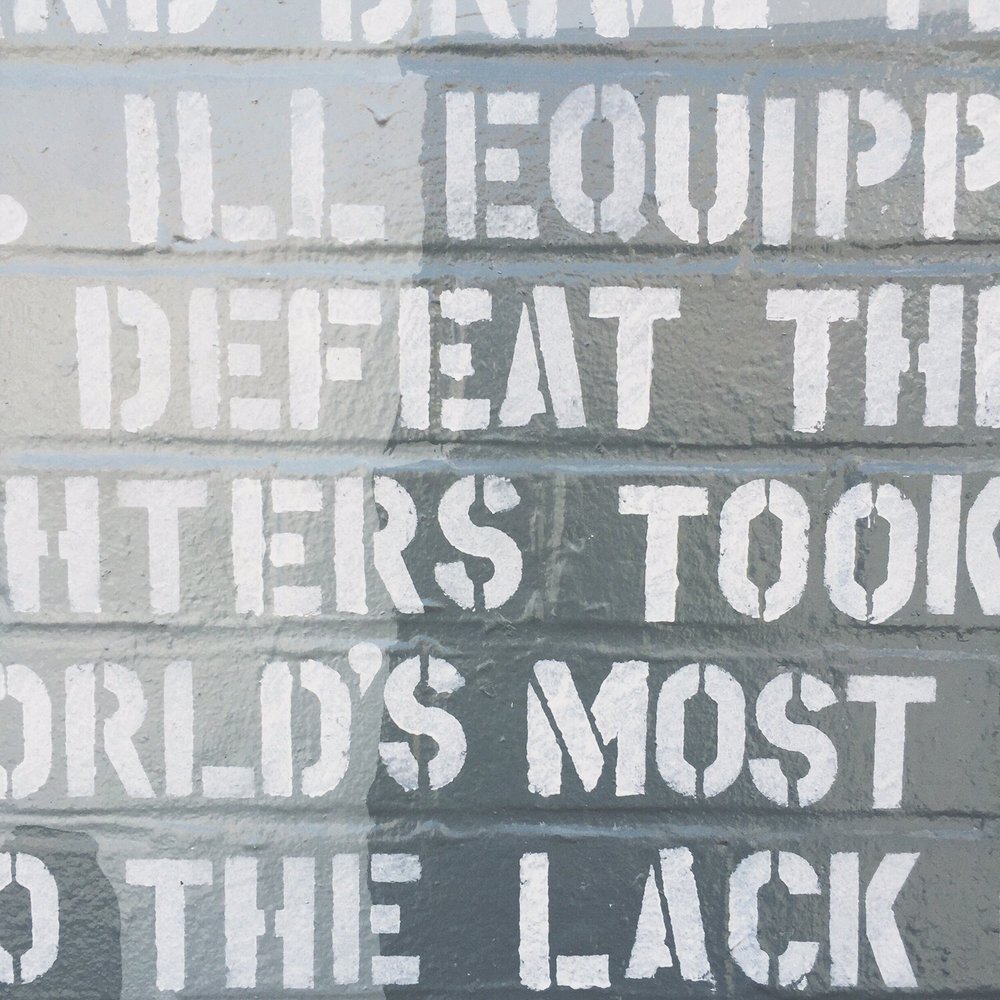 ILL EQUIPP
DEFEAT THE
HTERS TOOK
ORLD'S MOST
O THE LACK